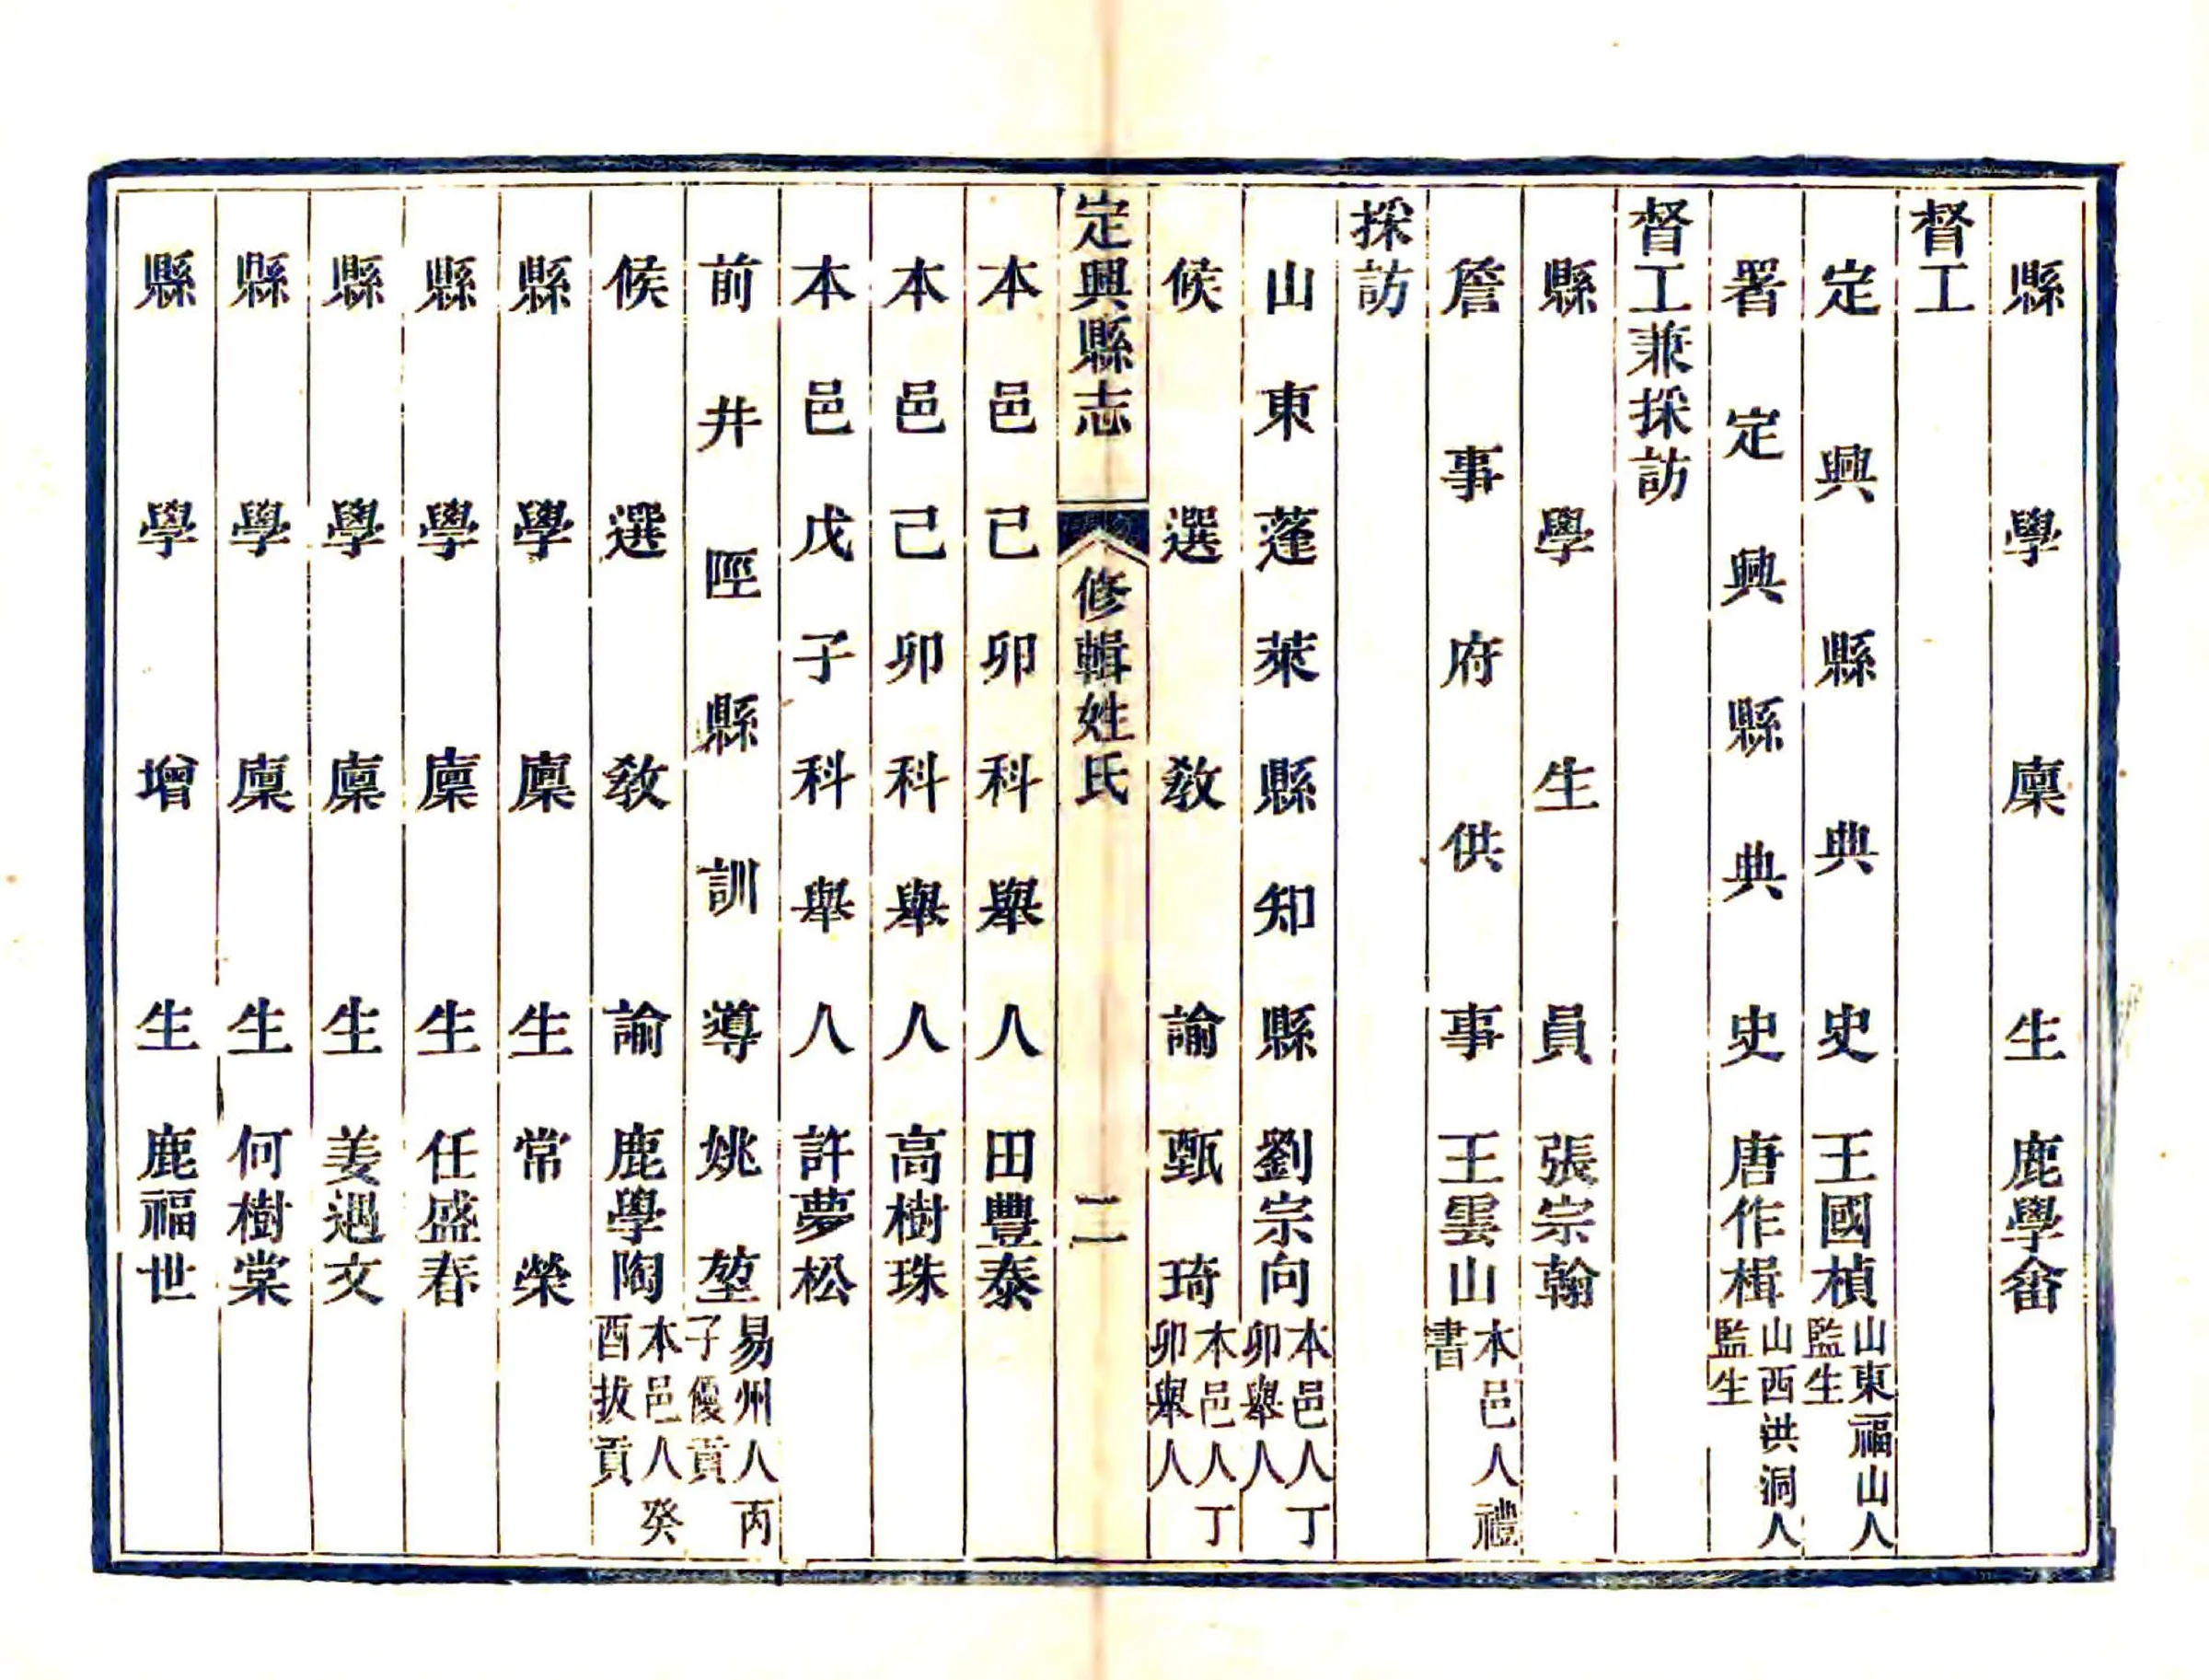 縣學廩生鹿學畬
督工
定興縣典史王國楨山東福山人監生
署定興縣典史唐作楫山西洪洞人監生
督工兼採訪
縣學生員張宗翰
詹事府供事王雲山本邑人禮書
採訪
山東蓬萊縣知縣劉宗向本邑人丁卯舉人
候選教諭甄琦本邑人丁卯舉人
定興縣志 修輯姓氏 二
本邑己卯科舉人田豐泰
本邑己卯科舉人高樹珠
本邑戊子科舉人許夢松
前井陘縣訓導姚堃易州人丙子優貢
候選教諭鹿學陶本邑人癸酉拔貢
縣學廩生常榮
縣學廩生任盛春
縣學廩生姜遇文
縣學廩生何樹棠
縣學增生鹿福世